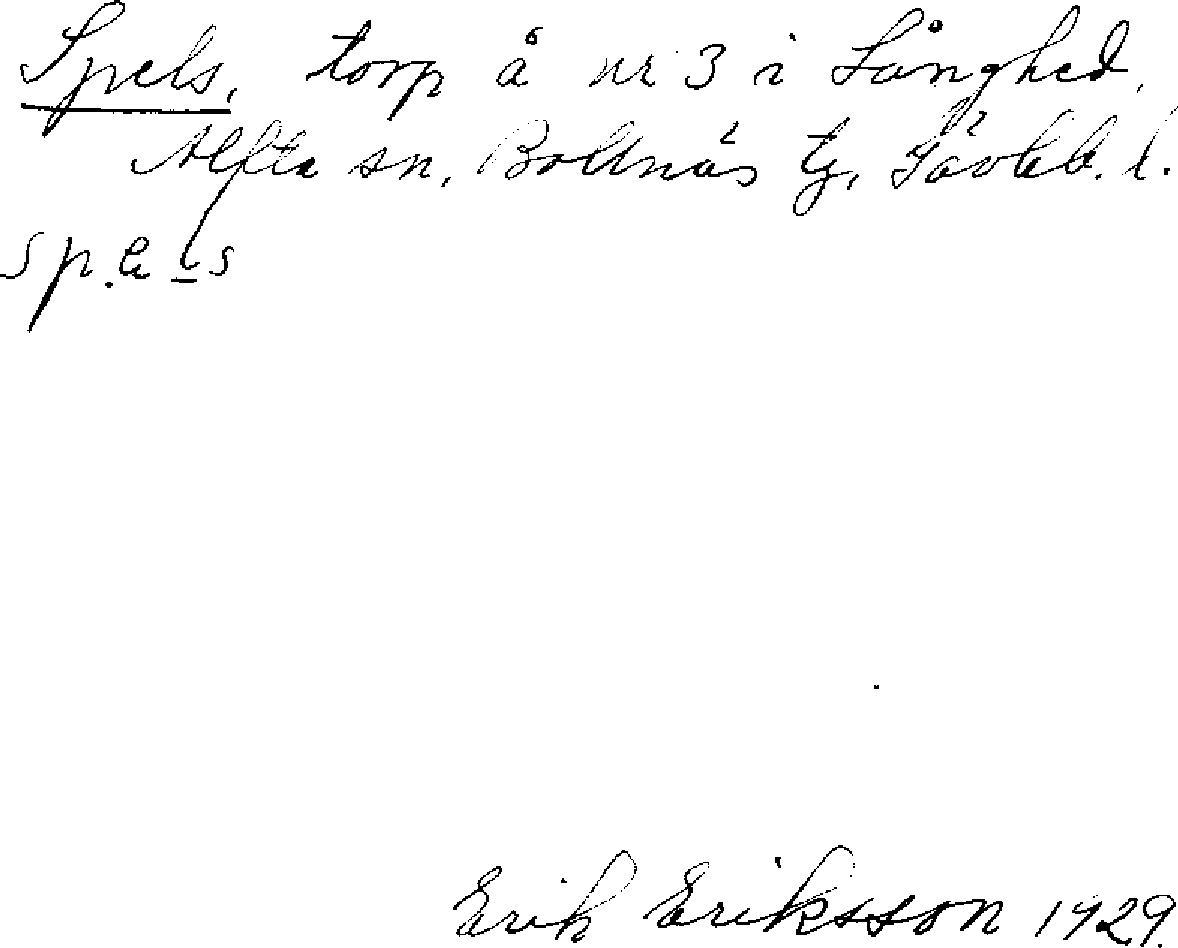 Spels, torp å nr 3 i Långhed,
Alfta sn, Bollnäs tg, Gävleb. l.
sp.e ls
Erik Eriksson 1929.